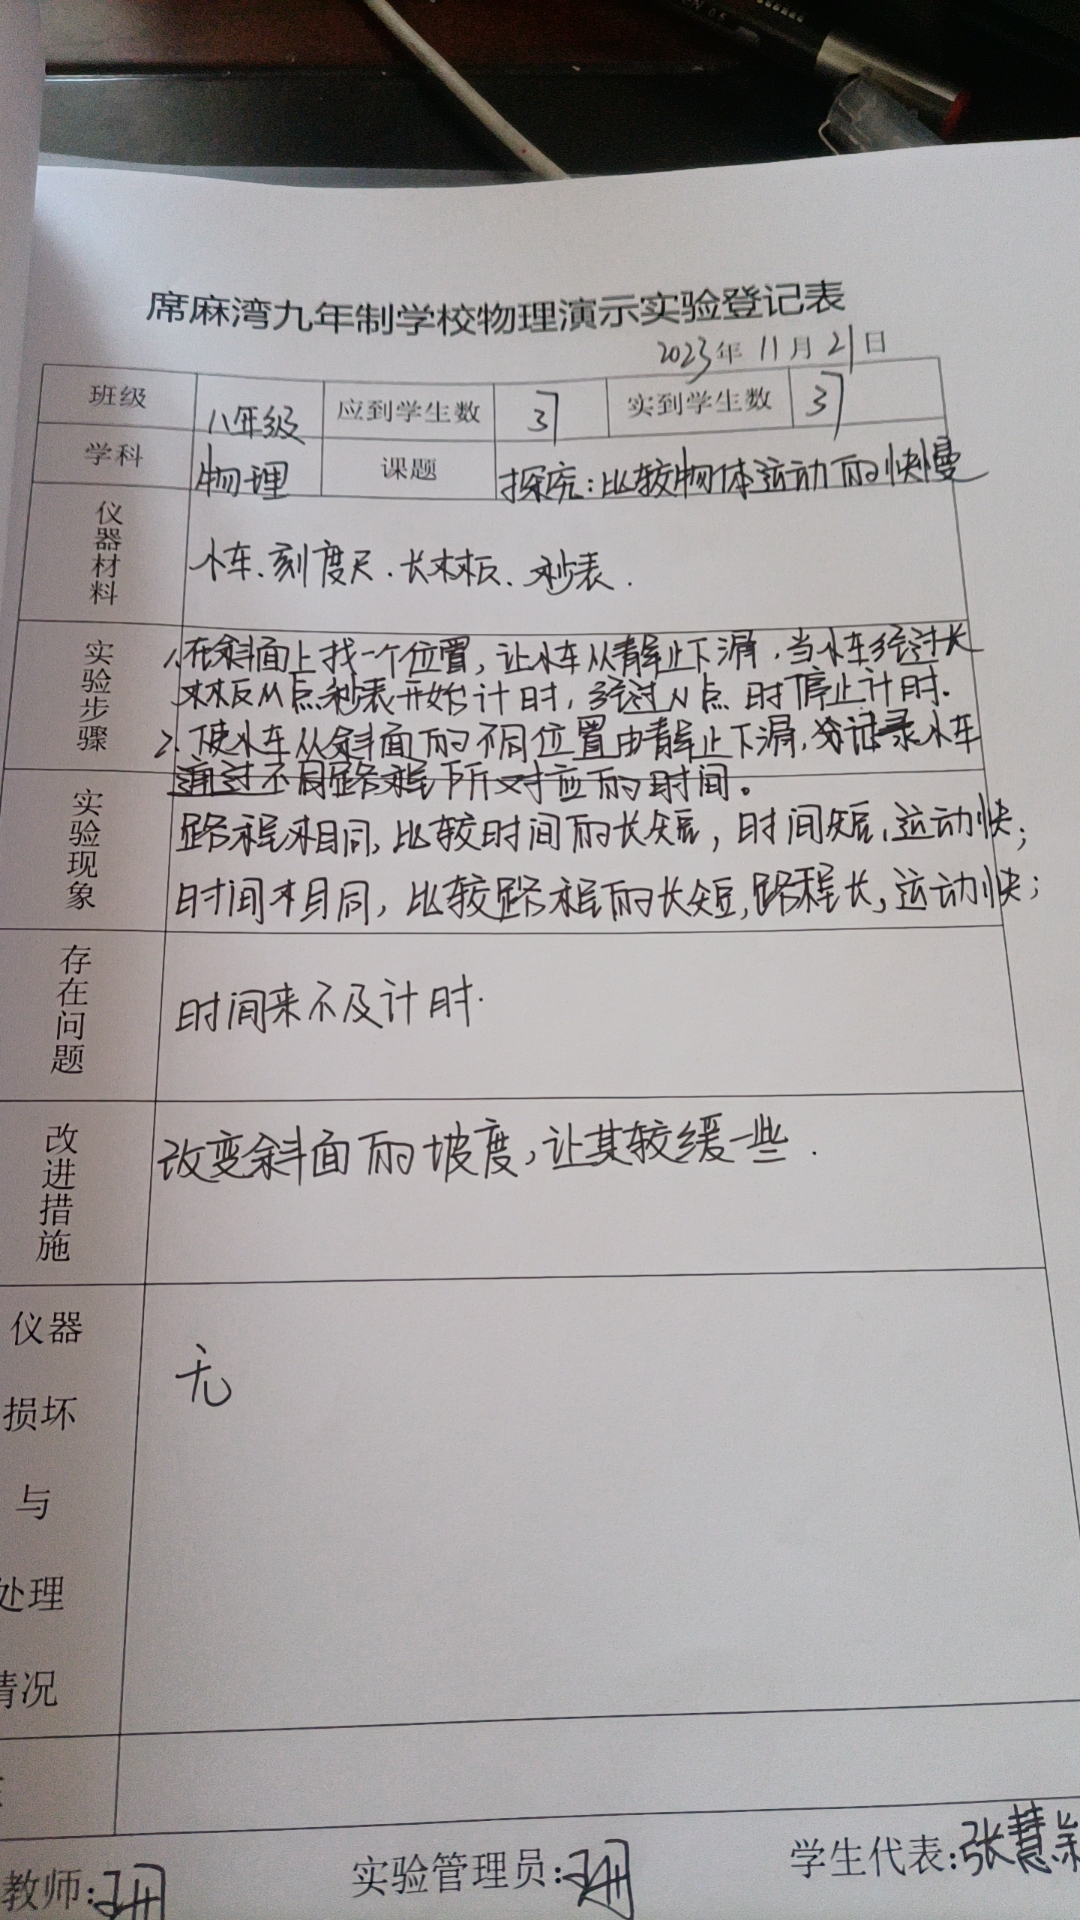 席麻湾九年制学校物理演示实验登记表
2023年 11月 21日
班级 八年级 应到学生数 37 实到学生数 37
学科 物理 课题 探究:比较物体运动的快慢
仪器材料 小车、刻度尺、长木板、秒表.
实验步骤 1.在斜面上找一个位置,让小车从静止下滑,当小车经过长
木板从点秒表开始计时,经过N点时停止计时.
2.使小车从斜面的不同位置由静止下滑,分记录小车
通过不同路程下所对应的时间。
实验现象 路程相同,比较时间的长短,时间短,运动快;
时间相同,比较路程的长短,路程长,运动快;
存在问题 时间来不及计时.
改进措施 改变斜面的坡度,让其较缓一些.
仪器
损坏
与
处理
情况
无
教师:
实验管理员:
学生代表:张慧